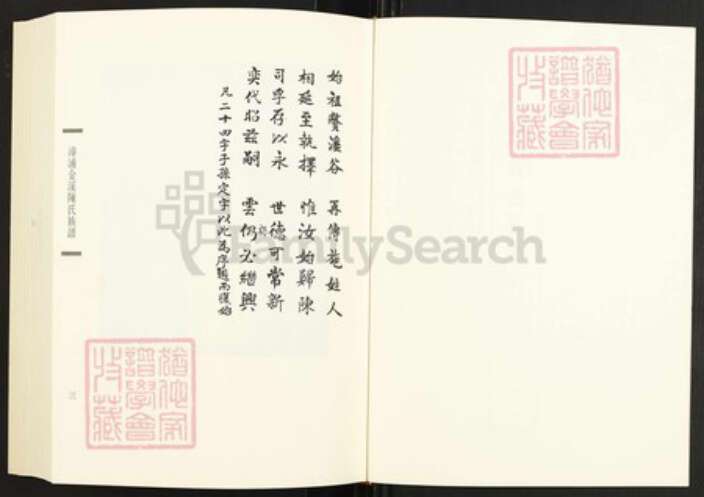 始祖賢漢谷　再傳施姓人
相延至執擇　惟汝始歸陳
司孚存以永　世德可常新
奕代昭茲嗣　雲仍必繼興
凡二十四字子孫定字以此為序週而復始
漳浦金溪陳氏族譜
FamilySearch
猶他家譜學會收藏
猶他家譜學會收藏